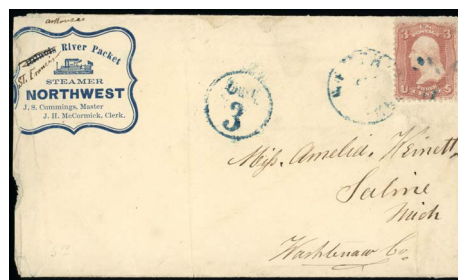 Arkansas
Illinois River Packet
St. Francis
STEAMER
NORTHWEST
J. S. Cummings, Master
J. H. McCormick, Clerk.
Due
3
3 POSTAGE 3
U S
Miss. Amelia.
Saline
Mich
Washtenaw Co